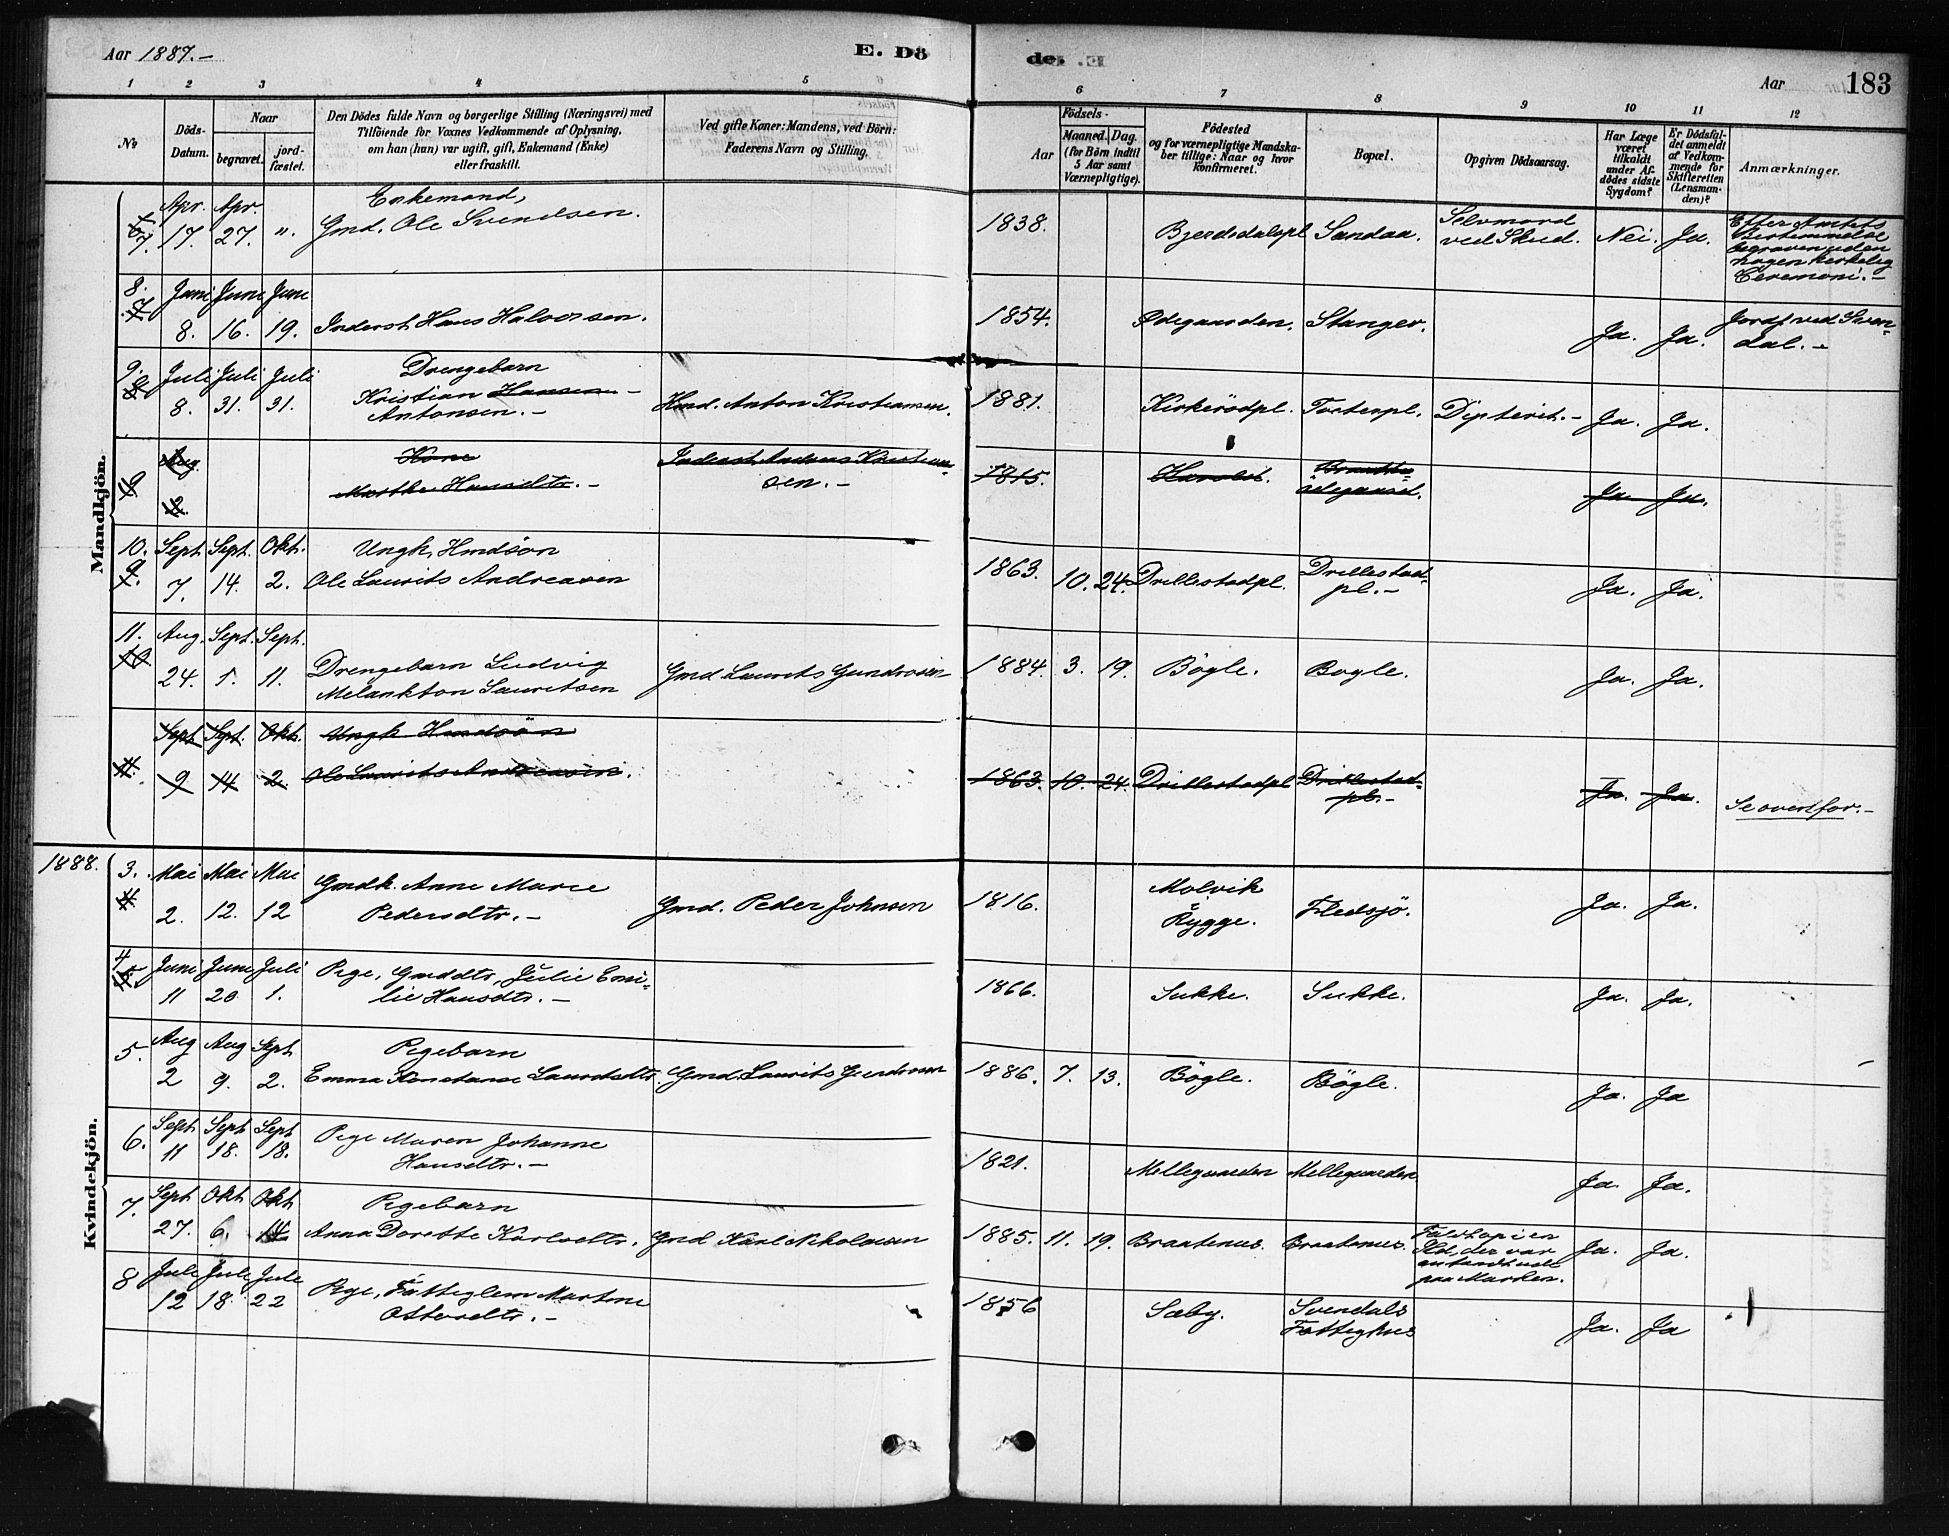 Aar 1887.-
E. Dö
de: E.
Aar 183
1 2 3 4 5 6 7 8 9 10 11 12
No
Döds-
Datum.
Naar
begravet.
jord-
fæstet.
Den Dödes fulde Navn og borgerlige Stilling (Næringsvei) med
Tilföiende for Voxnes Vedkommende af Oplysning,
om han (hun) var ugift, gift, Enkemand (Enke)
eller fraskilt.
Ved gifte Koner: Mandens, ved Börn:
Faderens Navn og Stilling.
Födsels-
Aar
Maaned. Dag.
(for Börn indtil
5 Aar samt
Værnepligtige).
Födested
og for værnepligtige Mandska-
ber tillige: Naar og hvor
konfirmeret.
Bopæl.
Opgiven Dödsaarsag.
Har Læge
været
tilkaldt
under Af-
dödes sidste
Sygdom?
Er Dödsfal-
det anmeldt
af Vedkom-
mende for
Skifteretten
(Lensman-
den)?
Anmærkninger.
Mandkjön.
7. Apr. 17. Apr. 27. "
Enkemand,
Gmd. Ole Svendsen.
1838. Sandaa.
Selvmord
ved Skud.
Nei. Ja.
Efter Amtets
Bestemmelse
begraven uden
nogen kirkelig
Ceremoni.-
8. 7
Juni Juni Juni
8. 16. 19. Inderst Hans Halvorsen.
1854. Ødegaarden. Stanger. Ja. Ja.
Jordf. ved Sven-
dal.-
9. 8
Juli Juli Juli
8. 31. 31.
Drengebarn
Kristian Hansen -
Antonsen.-
Hmd. Anton Kristiansen.
1881. Kirkerödpl. Torterpl. Dipterit.- Ja. Ja.
9
Aug.
2.
Kone
Marthe Hansdtr.-
Inderst Anders Kristian-
sen.-
1815.
ödegaard.
Ja. Ja.
10. 9.
Sept. Sept. Okt.
7. 14. 2.
Ungk. Hmdsön
Ole Laurits Andreasen
1863. 10. 24. Drillestadpl.
Drillestad-
pl.-
Ja. Ja.
11. 10
Aug. Sept. Sept.
24. 5. 11.
Drengebarn Ludvig
Melankton Lauritsen
Gmd Laurits Gundersen
1884. 3. 19. Bögle. Bogle. Ja. Ja.
11.
Sept. Sept. Okt.
9 14 2.
Ungk Hmdsön
Ole Laurits Andreasen.
1863. 10. 24. Drillestadpl
Drillestad-
pl.-
Ja. Ja. Se ovenfor.-
1888.
Kvindekjön.
3. 4
Mai Mai Mai
2. 12. 12
Gmdk. Anne Marie
Pedersdtr.-
Gmd. Peder Johnsen
1816.
Molvik
Rygge.
Flesjö.
Ja. Ja.
4 5.
Juni Juni Juli
11 20 1.
Pige, Gmddtr, Julie Emi-
lie Hansdtr.-
1866. Sukke. Sukke. Ja. Ja.
5.
Aug Aug Sept
2 9. 2.
Pigebarn
Emma Konstanse Lauritsdtr. Gmd. Laurits Gundersen
1886. 7. 13. Bögle. Bögle. Ja. Ja
6.
Sept Sept Sept
11 18. 18.
Pige Maren Johanne
Hansdtr.-
1821. Mellegaarden Mellegaarden Ja. Ja.
7.
Sept Okt Okt
27. 6. 14
Pigebarn
Anna Dorette Karlsdtr. Gmd Karl Nikolaisen
1885. 11. 19. Braatenus. Braatenus.
Ild, der var
antændt ude
paa Marken.
Ja. Ja.
8
Juli Juli Juli
12 18. 22
Pige, Fattiglem Martine
Ottersdtr.-
1856 Sæby.
Svendals
Fattighus
Ja. Ja